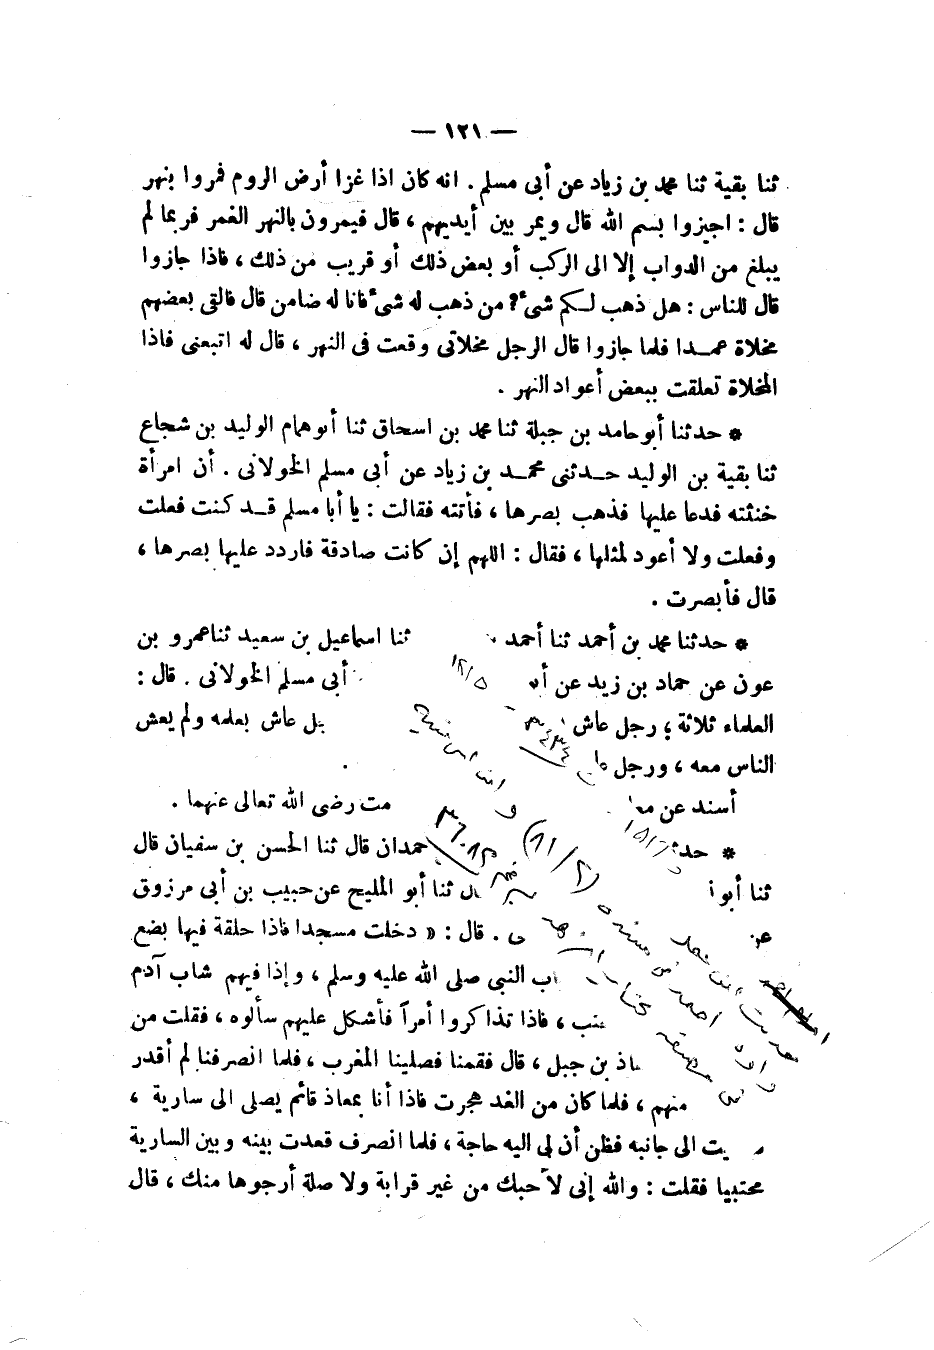 — ١٢١ —
ثنا بقية ثنا محمد بن زياد عن أبى مسلم . انه كان اذا غزا أرض الروم فمروا بنهر
قال : اجيزوا بسم الله قال ويمر بين أيديهم ، قال فيمرون بالنهر الغمر فربما لم
يبلغ من الدواب إلا الى الركب أو بعض ذلك أو قريب من ذلك ، فاذا جازوا
قال للناس : هل ذهب لكم شىء؟ من ذهب له شىء فانا له ضامن قال فالقى بعضهم
مخلاة عمدا فلما جازوا قال الرجل مخلاتى وقعت فى النهر ، قال له اتبعنى فاذا
المخلاة تعلقت ببعض أعواد النهر .
* حدثنا أبو حامد بن جبلة ثنا محمد بن اسحاق ثنا أبو همام الوليد بن شجاع
ثنا بقية بن الوليد حدثنى محمد بن زياد عن أبى مسلم الخولانى . أن امرأة
خنثته فدعا عليها فذهب بصرها ، فأتته فقالت : يا أبا مسلم قد كنت فعلت
وفعلت ولا أعود لمثلها ، فقال : اللهم إن كانت صادقة فاردد عليها بصرها ،
قال فأبصرت .
* حدثنا محمد بن أحمد ثنا أحمد ثنا اسماعيل بن سعيد ثنا عمرو بن
عون عن حماد بن زيد عن أبى مسلم الخولانى . قال :
العلماء ثلاثة ؛ رجل عاش بل عاش بعلمه ولم يعش
الناس معه ، ورجل
أسند عن مت رضى الله تعالى عنهما .
* حدث حمدان قال ثنا الحسن بن سفيان قال
ثنا أبو ال ثنا أبو المليح عن حبيب بن أبى مرزوق
عن ى . قال : « دخلت مسجدا فاذا حلقة فيها بضع
اب النبى صلى الله عليه وسلم ، وإذا فيهم شاب آدم
عنب ، فاذا تذاكروا أمراً فأشكل عليهم سألوه ، فقلت من
اذ بن جبل ، قال فقمنا فصلينا المغرب ، فلما انصرفنا لم أقدر
منهم ، فلما كان من الغد هجرت فاذا أنا بمعاذ قائم يصلى الى سارية ،
يت الى جانبه فظن أن لى اليه حاجة ، فلما انصرف قعدت بينه وبين السارية
محتبيا فقلت : والله إنى لأحبك من غير قرابة ولا صلة أرجوها منك ، قال